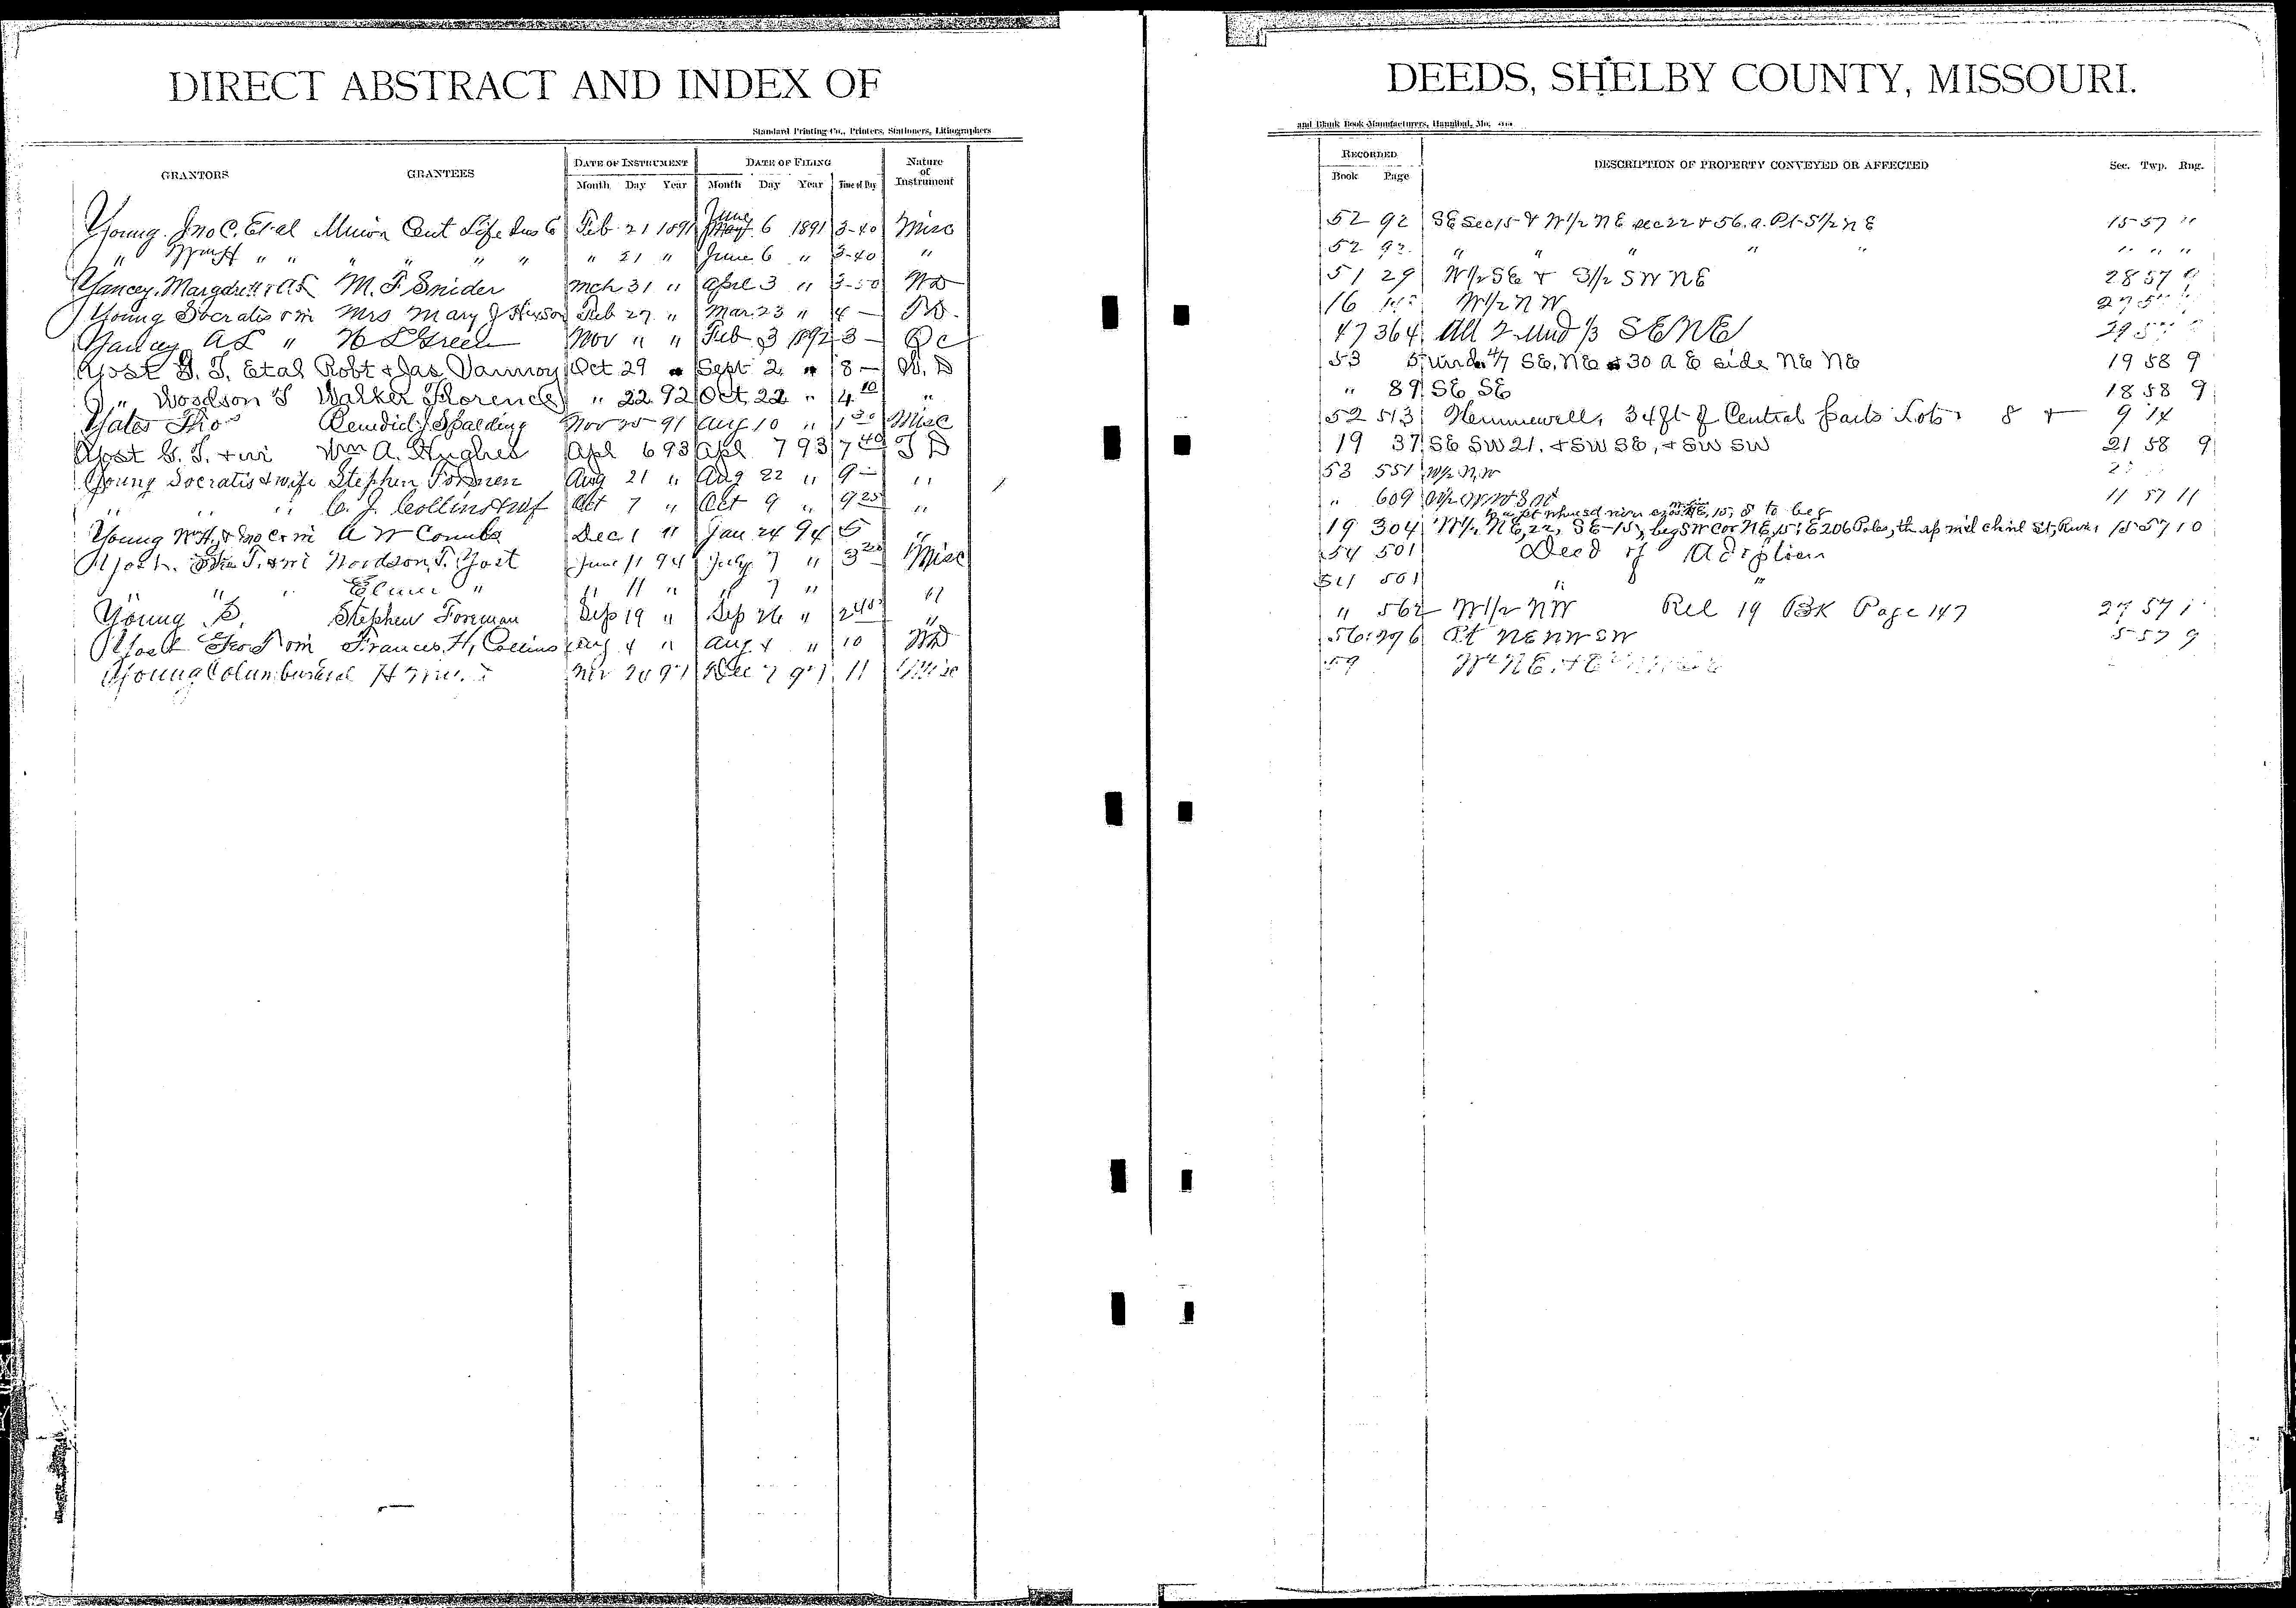 DIRECT ABSTRACT AND INDEX OF
DEEDS, SHELBY COUNTY, MISSOURI.
Standard Printing Co., Printers, Stationers, Lithographers
and Blank Book Manufacturers, Hannibal, Mo.
GRANTORS GRANTEES DATE OF INSTRUMENT DATE OF FILING Nature of Instrument
Month Day Year Month Day Year Time of Day
RECORDED DESCRIPTION OF PROPERTY CONVEYED OR AFFECTED Sec. Twp. Rng.
Book Page
Young. Jno C. Et al Union Cent Life Ins Co Feb 21 1891 June 6 1891 3-40 Misc 52 92 SE Sec 15 & W1/2 NE sec 22 & 56. a. Pt S1/2 NE 15 57 "
" " " " " " " 21 " June 6 " 3-40 " 52 92 " " " " " " "
Yancey. Margarett & A L M. F Snider Mch 31 " Aprl 3 " 3-50 WD 51 29 W1/2 SE & S1/2 SW NE 28 57
Young Socratis & wi Mrs Mary J Feb 27 " Mar 23 " 4 — 16 W1/2 NW 27
Yancey A L " Green Nov " " Feb 3 1892 3 — Qc 47 364 All 2 Und 1/3 SE NE 29
Yost G. T. Etal Robt & Jas Vannoy Oct 29 " Sept 2 " 8 — W. D 53 5 und 4/7 SE, NE & 30 A E side NE NE 19 58 9
" Woodson T Walker Florence " 22 92 Oct 22 " 4 10 " " 89 SE SE 18 58 9
Yates Tho Benedict J. Spalding Nov 25 91 Aug 10 " 1 30 Misc 52 513 Hunnewell, 34 ft of Central parts Lots 8 & 9 14
Yost G. T. & wi Wm A. Hughes Apl 6 93 Apl 7 93 7 40 T D 19 37 SE SW 21. & SW SE, & SW SW 21 58 9
Young Socratis & wife Stephen Foreman Aug 21 " Aug 22 " 9 — " 53 551 W1/2 N.W
" " " C. J. Collins Oct 7 " Oct 9 " 9 25 " " 609 11 57 11
Young W H, & Jno C & wi A W Combs Dec 1 " Jan 24 94 5 " 19 304 W1/2 NE, 22, SE-15, beg SW cor NE, 15; E 206 Poles, 15 57 10
Yost. T. & wi Woodson, T. Yost June 11 94 July 7 " 3 20 Misc 54 501 Deed of Adoption
" " " Elmer " " 11 " " 7 " " 54 501 " "
Young S. Stephen Foreman Sep 19 " Sep 26 " 2 40 " " 562 W1/2 NW Rel 19 BK Page 147 27 57
Yost & wi Frances, H, Collins Aug 4 " Aug 4 " 10 WD 56 296 Pt NE NW SW 5 57 9
Young Columbus et al Nov 20 97 Dec 7 97 11 Misc 59